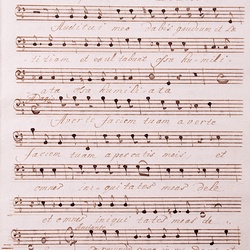 Auditui meo dabis gaudium et lae
titiam et exultabunt ossa humili
ata ossa humiliata
Averte faciem tuam averte
faciem tuam a peccatis meis et
omnes iniquitates meas dele
et omnes iniquitates meas de
Andante